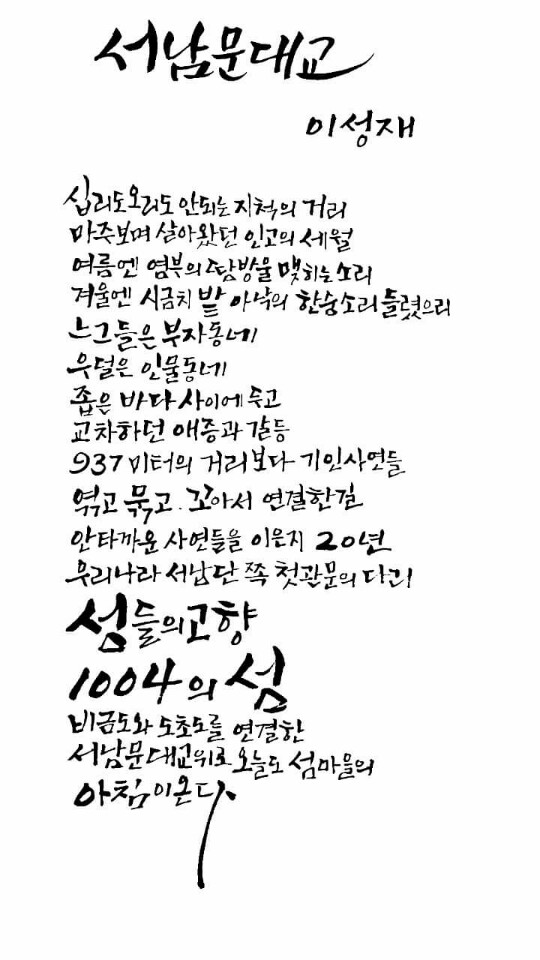 서남문대교
이성재
십리도오리도 안되는 지척의 거리
마주보며 살아왔던 인고의 세월
여름엔 염부의 땀방울 맺히는 소리
겨울엔 시금치 밭 아낙의 한숨소리 들렸으리
느그들은 부자동네
우덜은 인물동네
좁은 바다 사이에 두고
교차하던 애증과 갈등
937미터의 거리보다 기인사연들
엮고 묶고. 꼬아서 연결한길
안타까운 사연들을 이은지 20년
우리나라 서남단 쪽 첫관문의 다리
섬들의고향
1004의 섬
비금도와 도초도를 연결한
서남문대교위로 오늘도 섬마을의
아침이온다